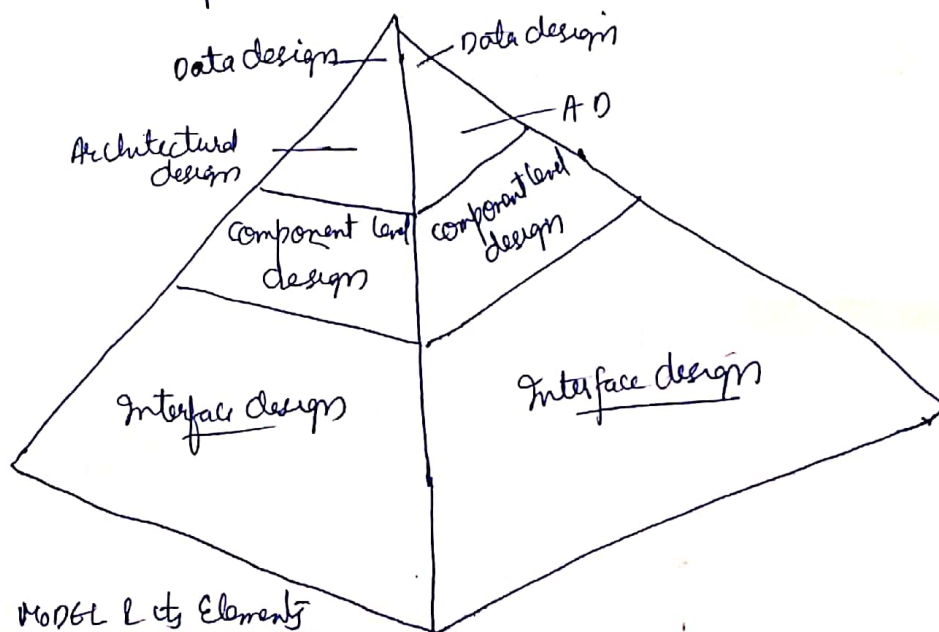 Data design
Data design
Architectural
design
A D
Component level
design
Component level
design
Interface design
Interface design
MODEL & its Elements